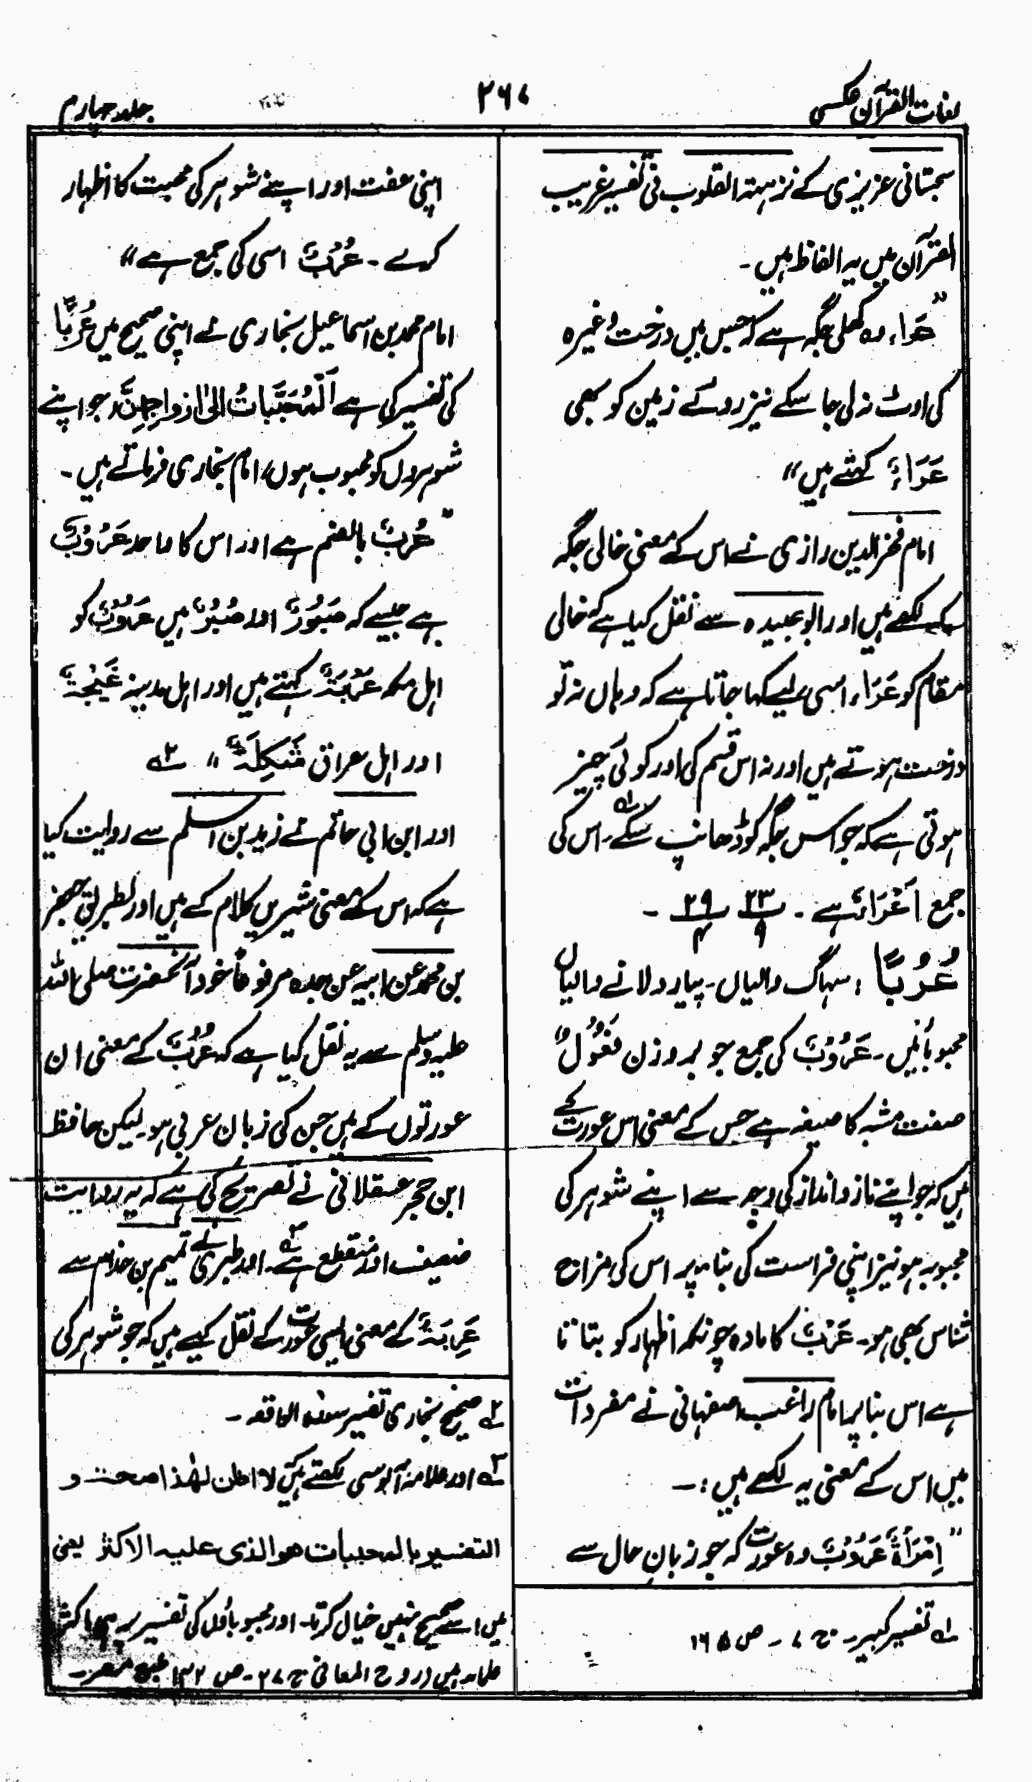 لغات القرآن عکسی
۲۶۷
جلد چہارم
سجستانی عزیزی کے نزہتہ القلوب فی تفسیر غریب
القرآن میں یہ الفاظ ہیں۔
”عَرَاء، وہ کھلی جگہ ہے کہ جس میں درخت وغیرہ
کی اوٹ نہ لی جا سکے نیز روئے زمین کو بھی
عَرَاءٌ کہتے ہیں“
امام فخر الدین رازی نے اس کے معنی خالی جگہ
کے لکھے ہیں اور ابو عبیدہ سے نقل کیا ہے کہ خالی
مقام کو عَرَاء اسی لیے کہا جاتا ہے کہ وہاں نہ تو
درخت ہوتے ہیں اور نہ اس قسم کی اور کوئی چیز
ہوتی ہے کہ جو اس جگہ کو ڈھانپ سکے۔ ؎۱ اس کی
جمع اَعْرَاء ہے۔ ۲۳/۹ ۲۹/۴ ۔
عُرُبًا : سہاگ والیاں۔ پیار دلانے والیاں
محبوبائیں۔ عَرُوْبٌ کی جمع جو بروزن فَعُوْلٌ
صفت مشبہ کا صیغہ ہے جس کے معنی اس عورت کے
ہیں کہ جو اپنے ناز و انداز کی وجہ سے اپنے شوہر کی
محبوبہ ہو نیز اپنی فراست کی بنا پر اس کی مزاج
شناس بھی ہو۔ عَرْبٌ کا مادہ چونکہ اظہار کو بتاتا
ہے اس بنا پر امام راغب اصفہانی نے مفردات
میں اس کے معنی یہ لکھے ہیں :۔
”اِمْرَأَةٌ عَرُوْبٌ وہ عورت کہ جو زبانِ حال سے
؎۱ تفسیر کبیر۔ ج ۷ ۔ ص ۱۶۵
اپنی عفت اور اپنے شوہر کی محبت کا اظہار
کرے۔ عُرُبٌ اسی کی جمع ہے“
امام محمد بن اسماعیل بخاری نے اپنی صحیح میں عُرُبًا
کی تفسیر کی ہے اَلْمُحَبَّبَاتُ اِلیٰ ازواجِهِنَّ (جو اپنے
شوہروں کو محبوب ہوں) امام بخاری فرماتے ہیں۔
”عُرُبٌ بالضم ہے اور اس کا واحد عَرُوْبٌ
ہے جیسے کہ صَبُوْرٌ اور صُبُرٌ ہیں عَرُوْبٌ کو
اہل مکہ عَرِبَةٌ کہتے ہیں اور اہل مدینہ غَنِجَةٌ
اور اہل عراق شَكِلَةٌ“ ؎۲
اور ابن ابی حاتم نے زید بن اسلم سے روایت کیا
ہے کہ اس کے معنی شیریں کلام کے ہیں اور بطریق جعفر
بن محمد عن ابیہ عن جدہ مرفوعاً خود آنحضرت صلی اللہ
علیہ وسلم سے یہ نقل کیا ہے کہ عُرُبٌ کے معنی ان
عورتوں کے ہیں جن کی زبان عربی ہو۔ لیکن حافظ
ابن حجر عسقلانی نے تصریح کی ہے کہ یہ روایت
ضعیف اور منقطع ہے۔ ؎۳ اور طبری نے تمیم بن حذام سے
عَرِبَةٌ کے معنی ایسی عورت کے نقل کیے ہیں کہ جو شوہر کی
؎۲ صحیح بخاری تفسیر سورہ الواقعہ۔
؎۳ اور علامہ آلوسی لکھتے ہیں لا اظن لهٰذا صحت و
التفسير بالمحببات هو الذى عليه الاكثر یعنی
میں اسے صحیح نہیں خیال کرتا۔ اور محبوباؤں کی تفسیر پر ہی اکثر
علماء ہیں (روح المعانی ج ۲۷۔ ص ۱۳۲ طبع مصر۔